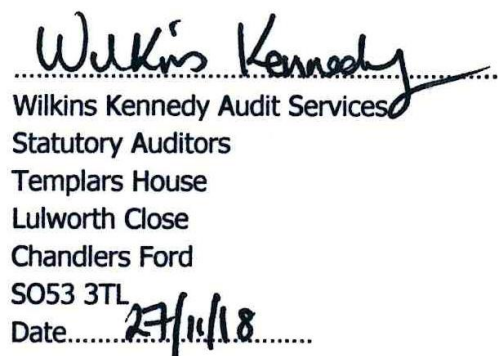 Wilkins Kennedy
Wilkins Kennedy Audit Services
Statutory Auditors
Templars House
Lulworth Close
Chandlers Ford
SO53 3TL
Date......27/11/18......